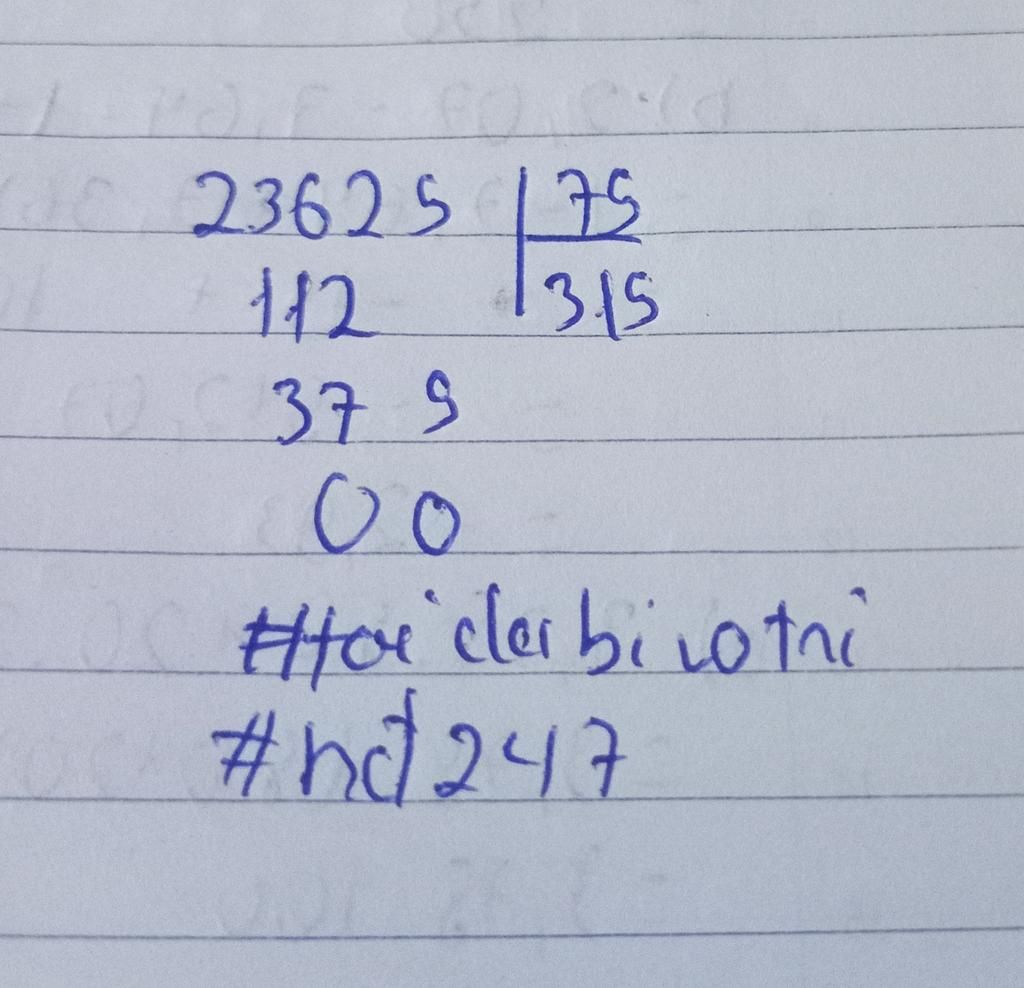 23625 | 75
112 | 315
37 5
00
#toi da bi lo tri
#hd247